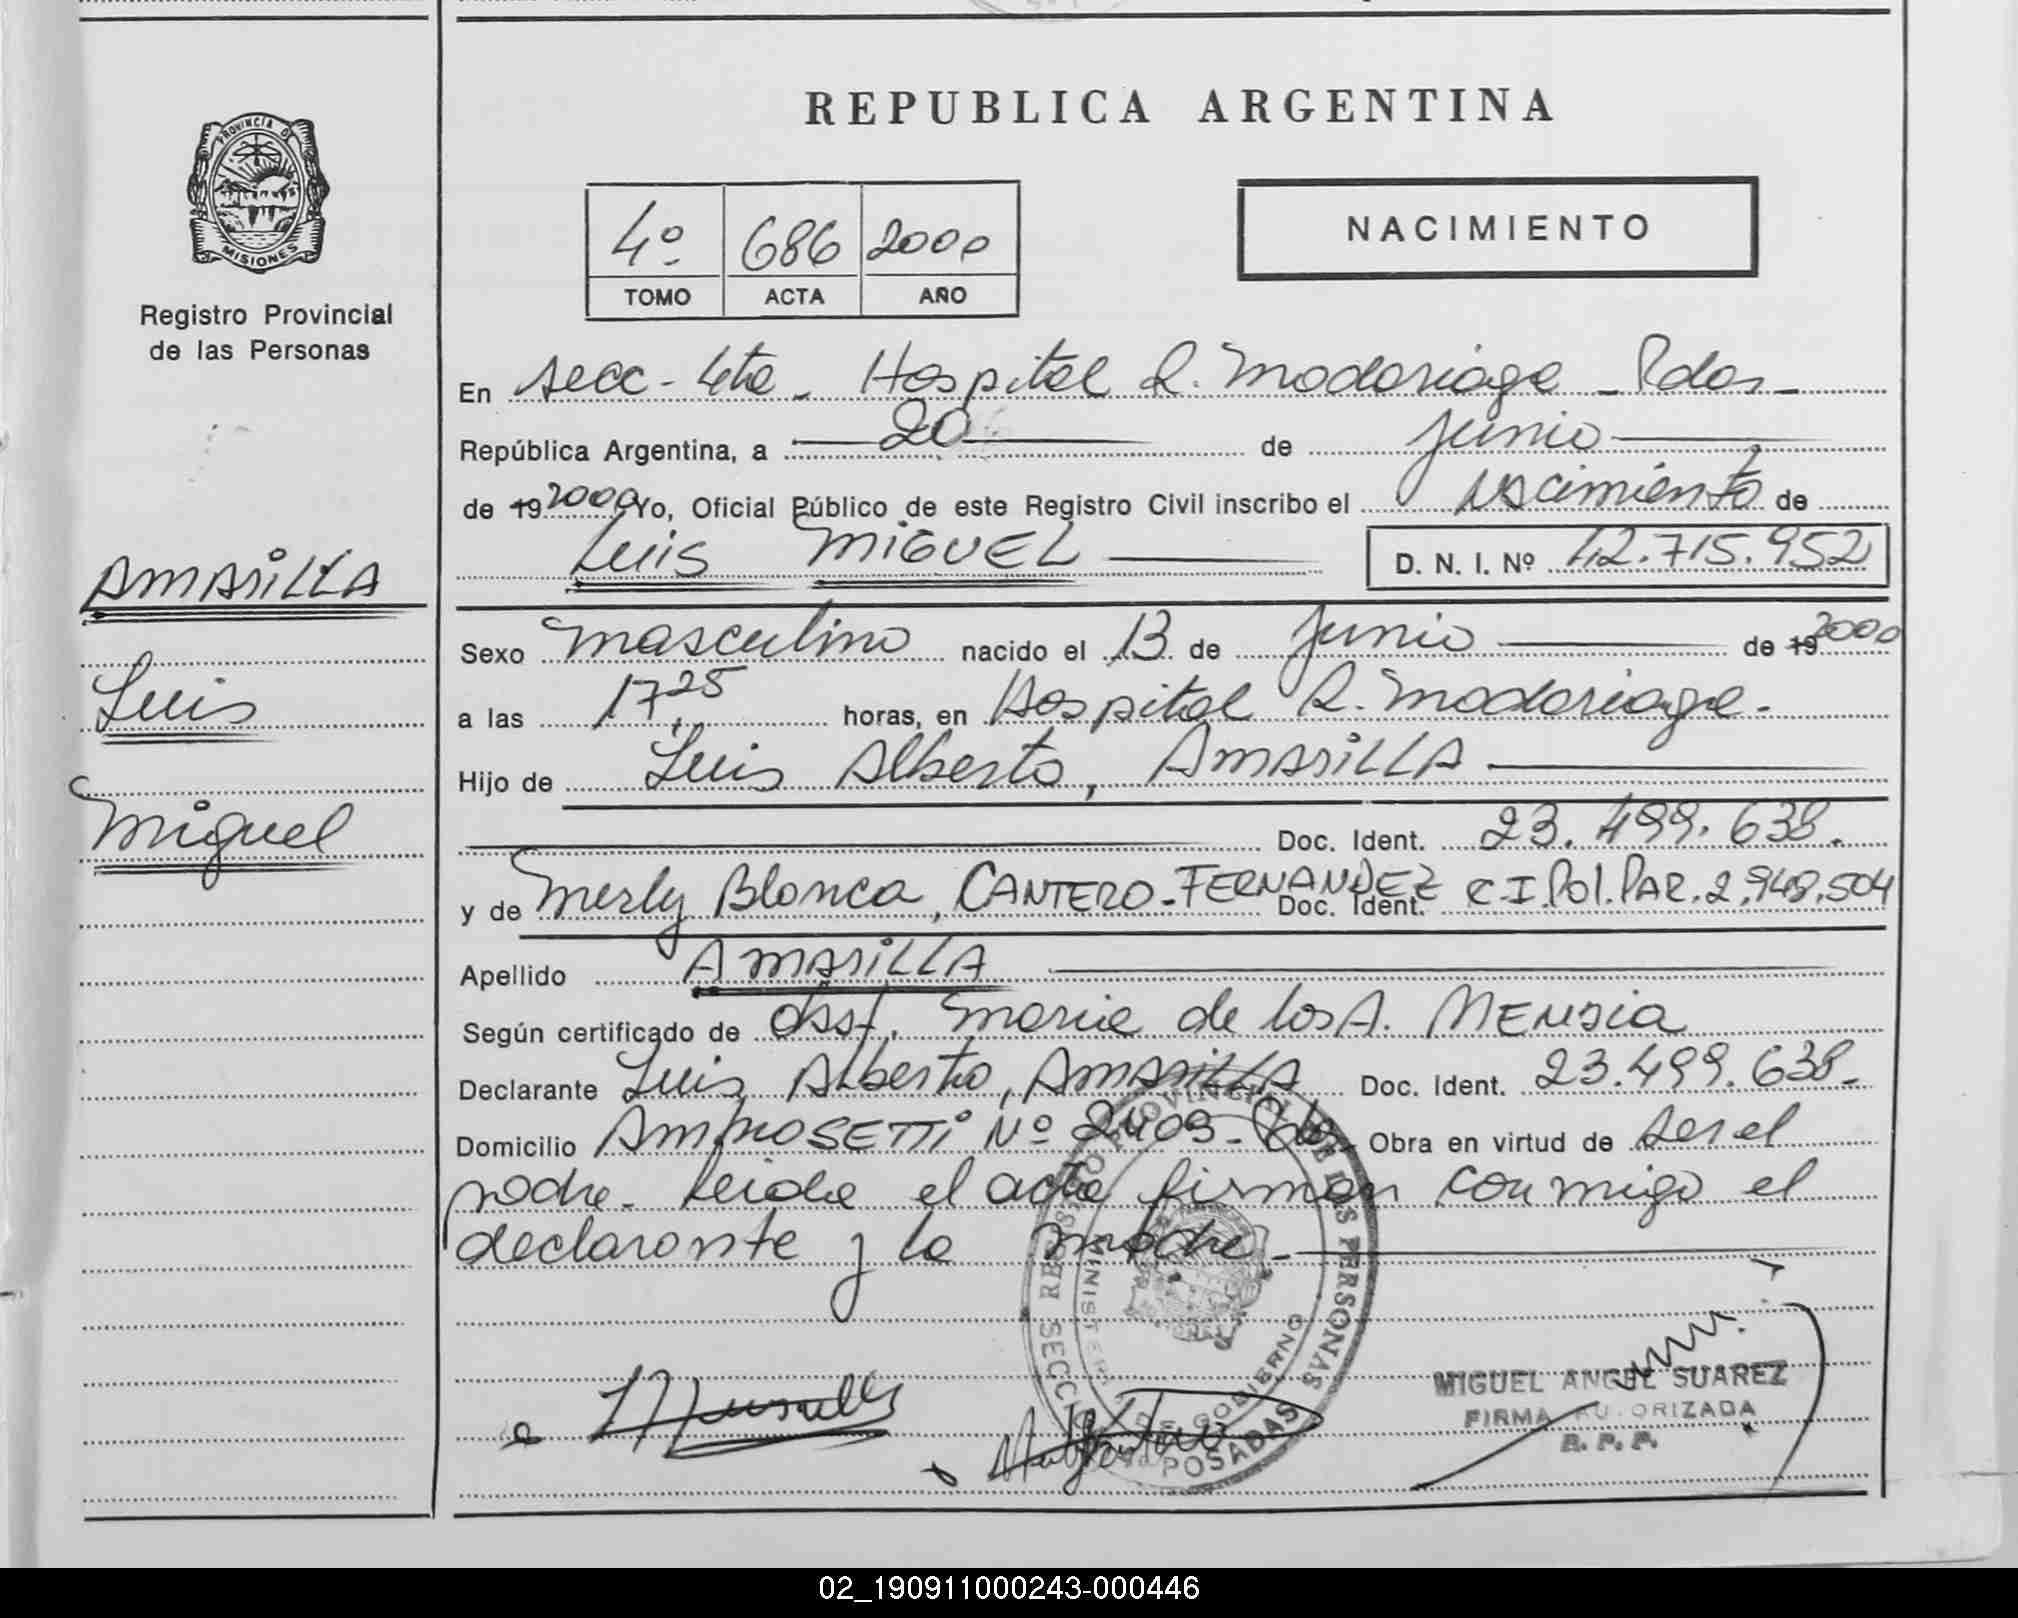 REPUBLICA ARGENTINA
PROVINCIA DE
MISIONES
Registro Provincial
de las Personas
4º 686 2000
TOMO ACTA AÑO
NACIMIENTO
En secc - 4ta - Hospital R. Madariaga - Pdas -
República Argentina, a 20 de junio
de 19 2000 Yo, Oficial Público de este Registro Civil inscribo el nacimiento de
Luis MIGUEL D. N. I. Nº 42.715.952
AMARILLA
Luis
Miguel
Sexo masculino nacido el 13 de junio de 19 2000
a las 17,25 horas, en Hospital R. Madariaga.
Hijo de Luis Alberto, AMARILLA
Doc. Ident. 23.499.638.
y de Merly Blanca, CANTERO-FERNANDEZ Doc. Ident. C.I.Pol.PAR.2.948.504
Apellido AMARILLA
Según certificado de obst. Maria de los A. MENDIA
Declarante Luis Alberto, AMARILLA Doc. Ident. 23.499.638.
Domicilio AMBROSETTI Nº 2409 - Pdas - Obra en virtud de ser el
padre - Leida el acta firman conmigo el
declarante y la madre -
REGISTRO PROVINCIAL DE LAS PERSONAS
MINISTERIO DE GOBIERNO
SECC
POSADAS
MIGUEL ANGEL SUAREZ
FIRMA AUTORIZADA
R. P. P.
02_190911000243-000446